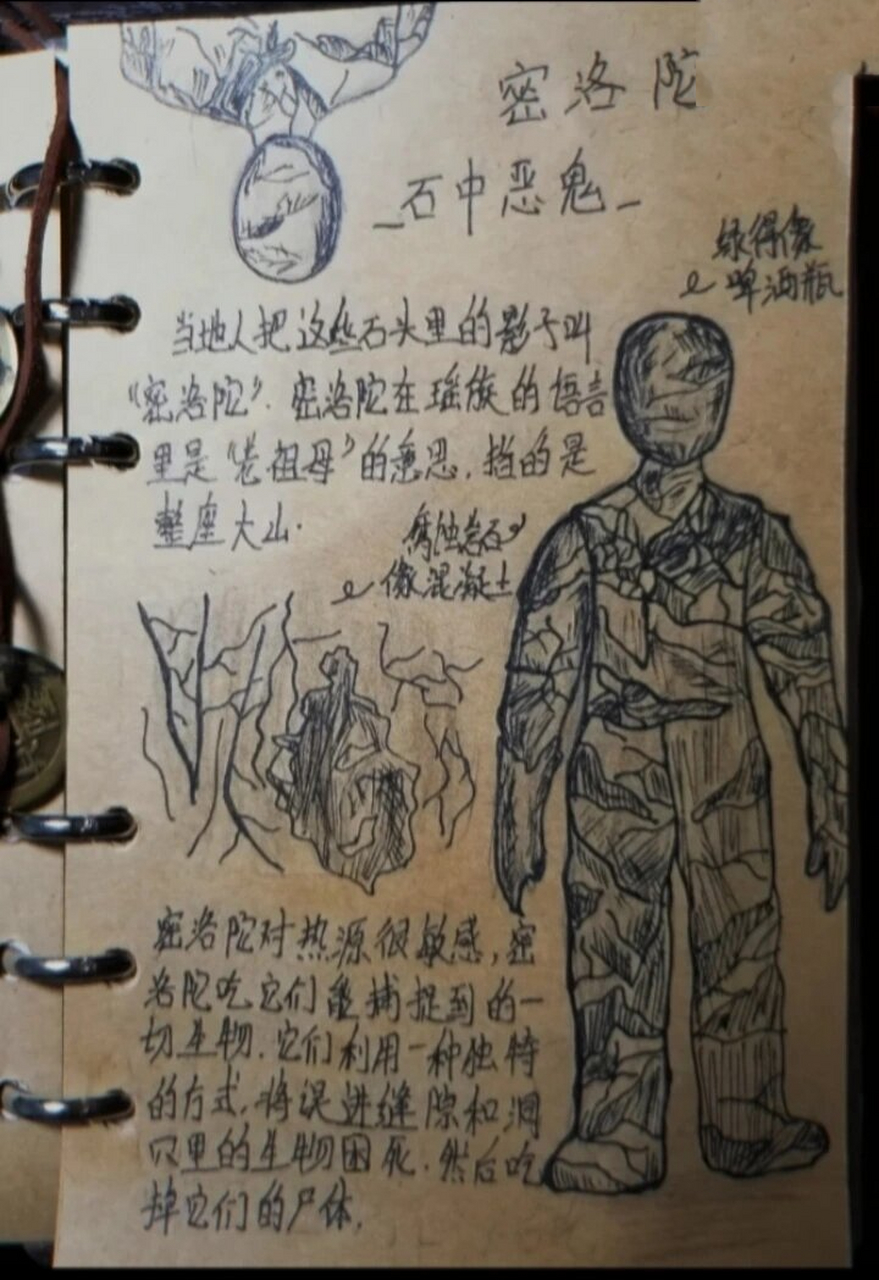 密洛陀
_石中恶鬼_
绿得像
啤酒瓶
当地人把这些石头里的影子叫
“密洛陀”. 密洛陀在瑶族的语言
里是“老祖母”的意思, 指的是
整座大山.
腐蚀岩石
像混凝土
密洛陀对热源很敏感, 密
洛陀吃它们能捕捉到的一
切生物. 它们利用一种独特
的方式, 将误进缝隙和洞
穴里的生物困死. 然后吃
掉它们的尸体.